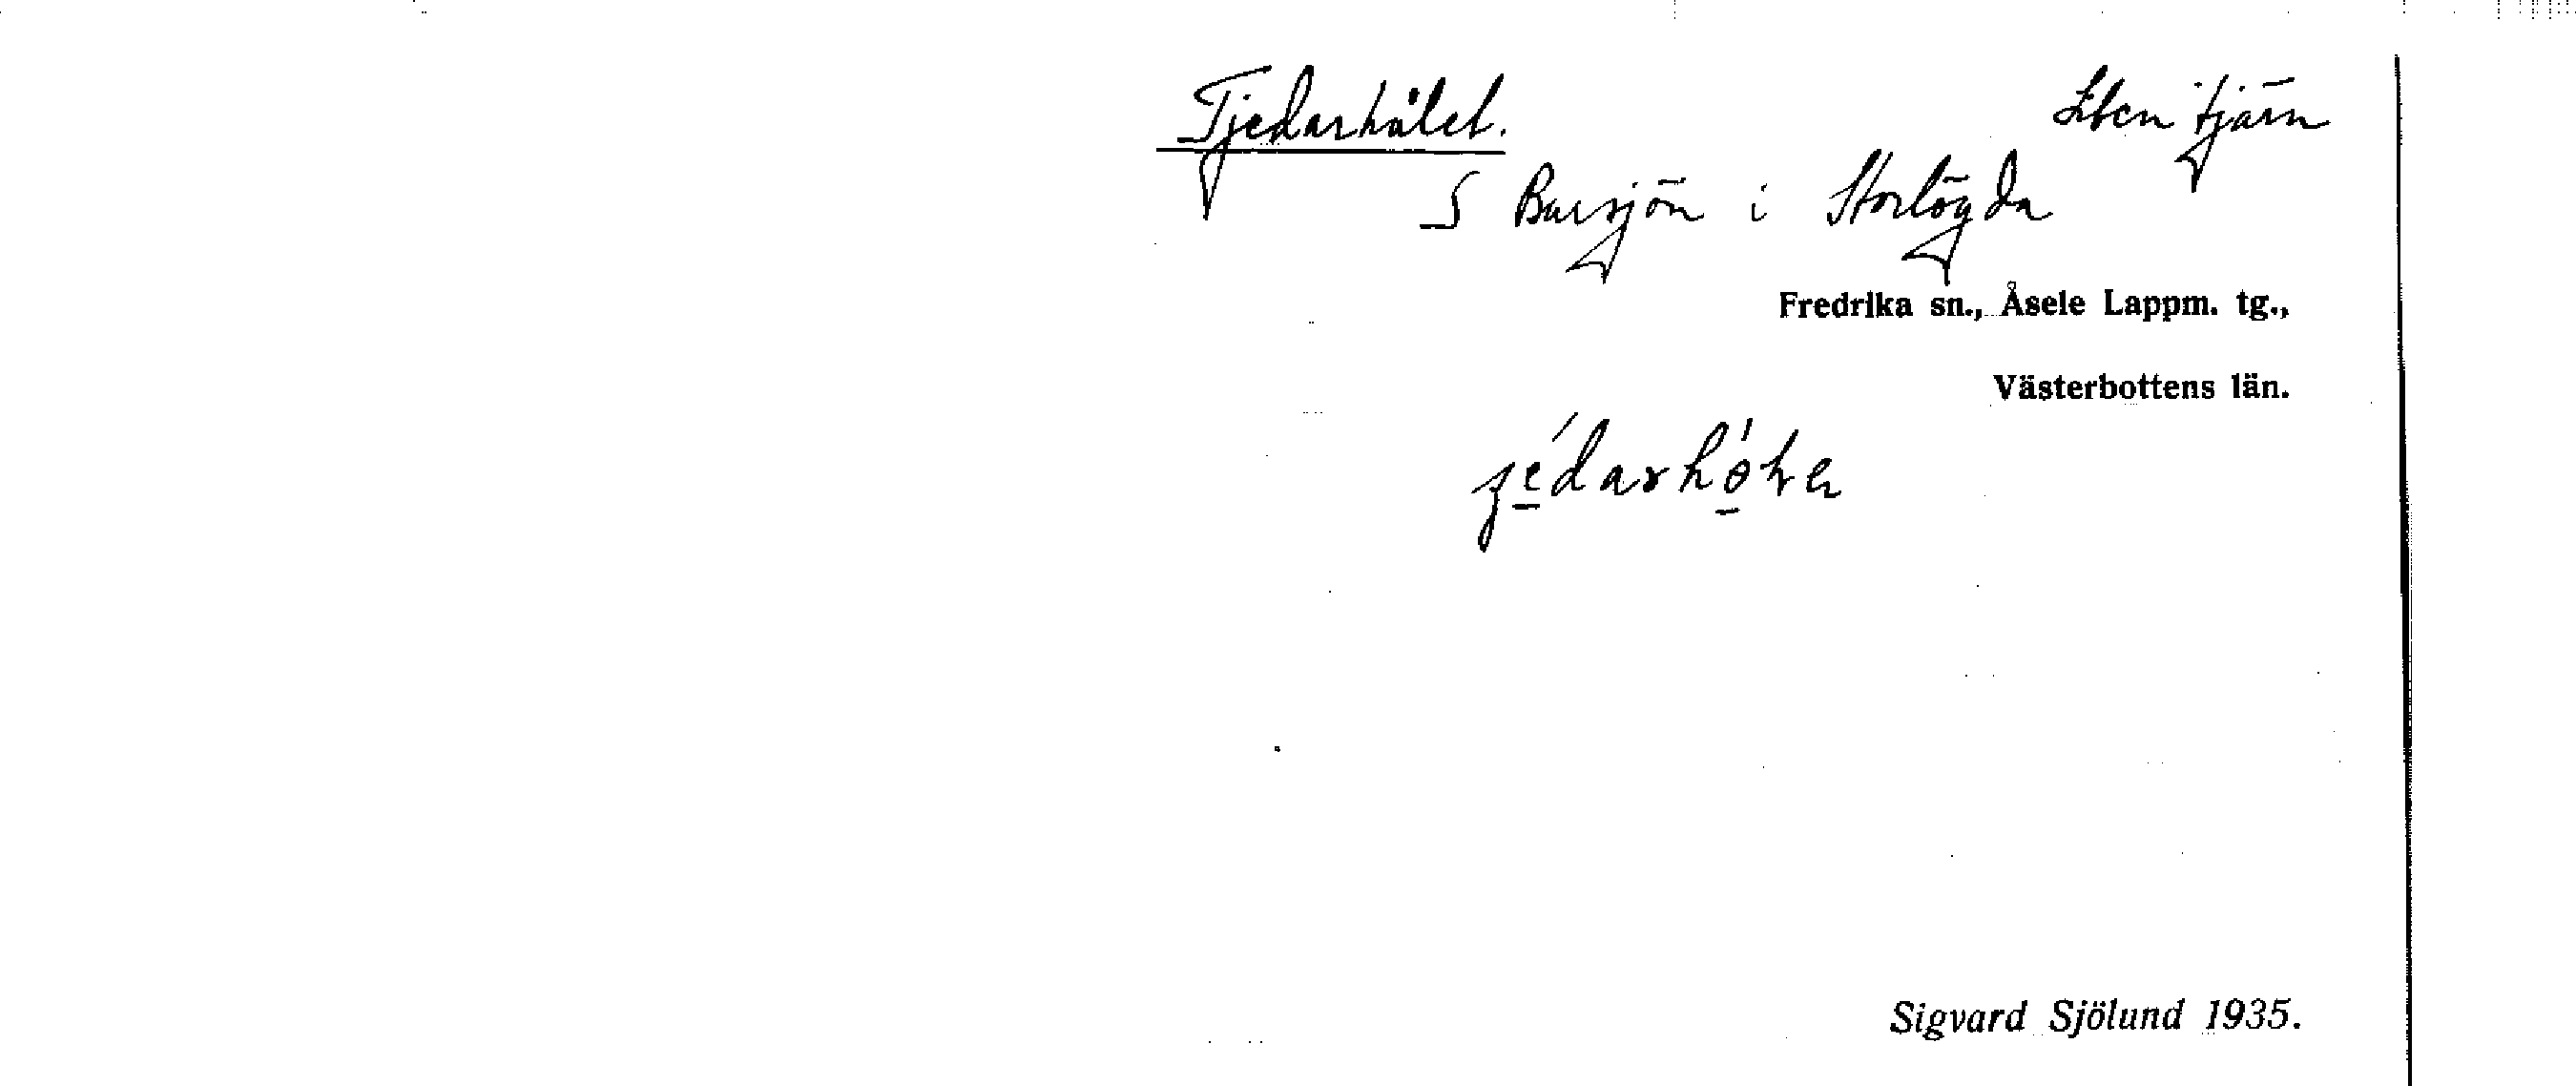 Tjedarhålet. Liten tjärn
S Bursjön i Storlögda
Fredrika sn., Åsele Lappm. tg.,
Västerbottens län.
Sigvard Sjölund 1935.